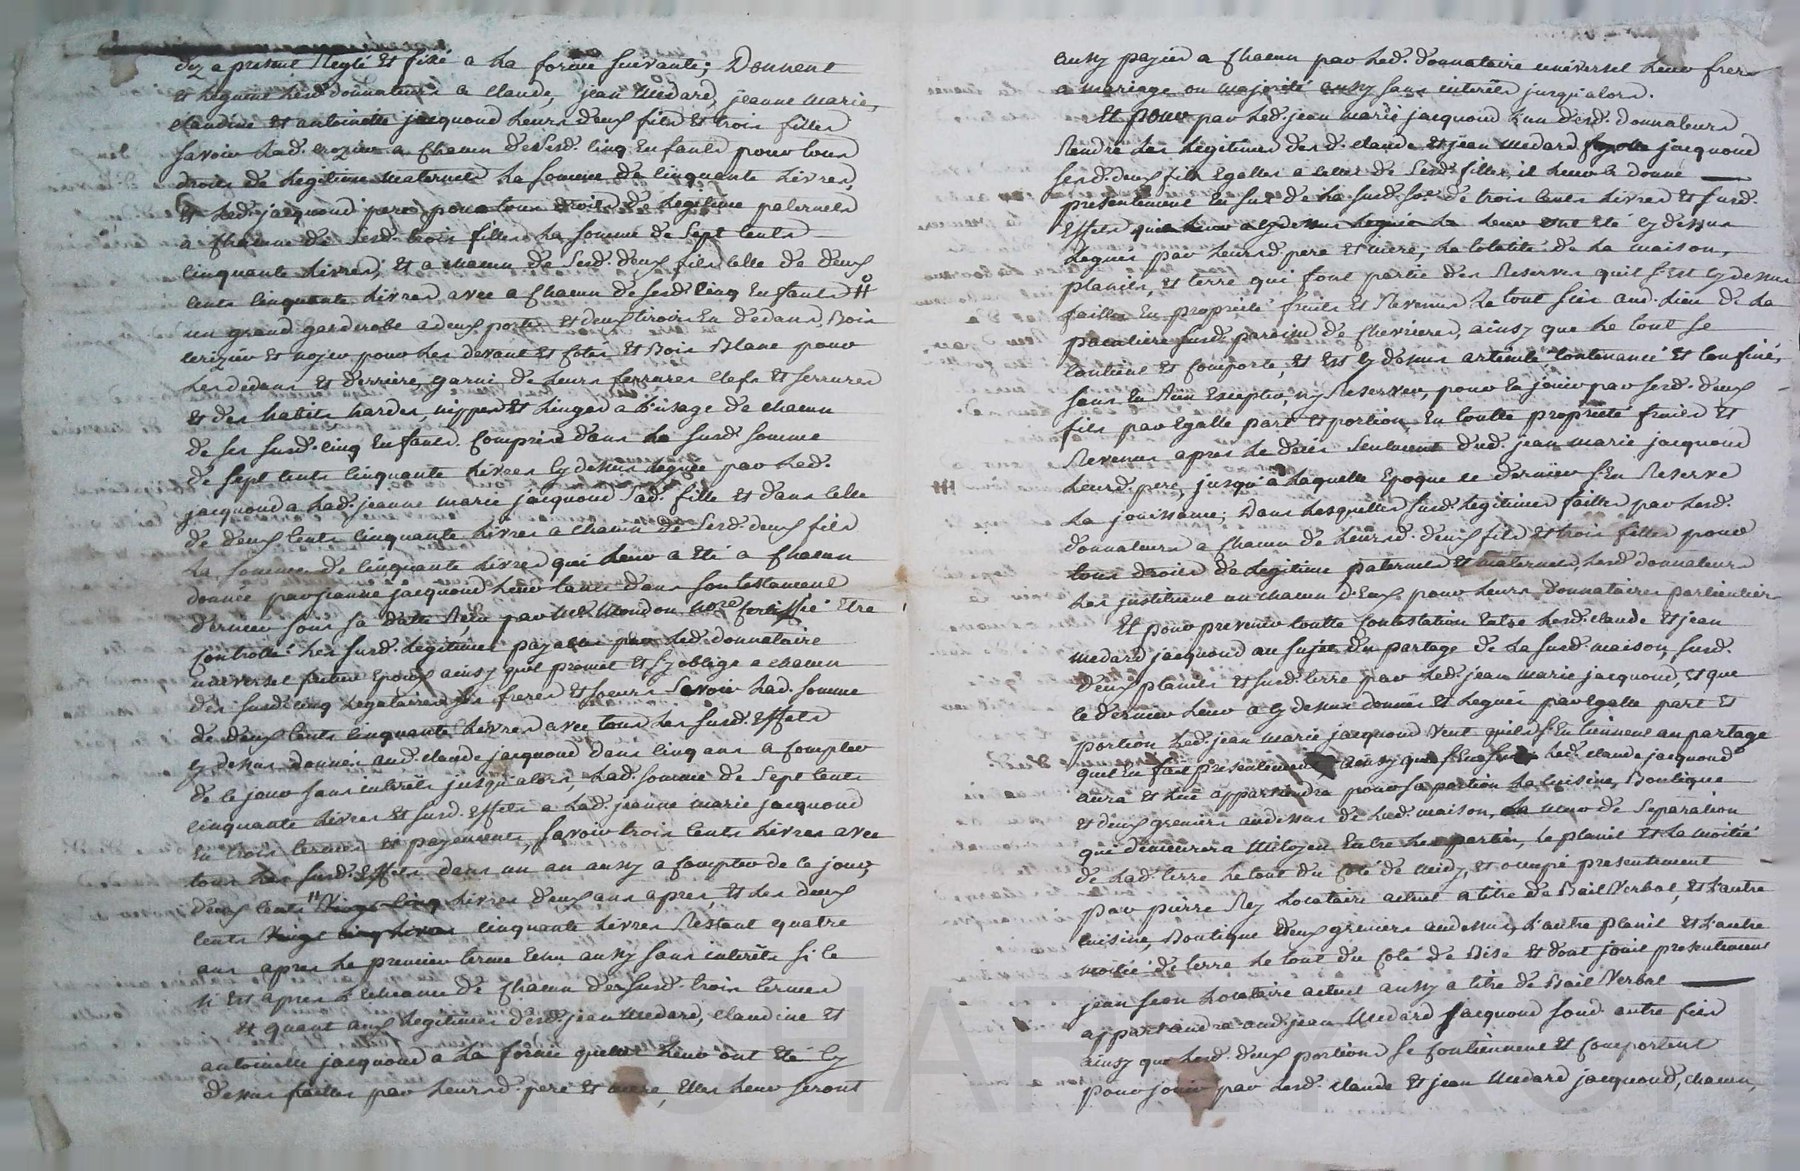 dez a present Reglé et fixé a la forme suivante; Donnent
et leguent lesd. donnateurs a claude, jean Medard, jeanne marie,
claudine et antoinette jacquond leurs deux fils et trois filles
savoir lad. crozier a chacun desd. cinq enfants pour tous
droits de legitime maternels la somme de cinquante livres,
et led. jacquond pere pour tous droits de legitime paternels
a chacune de sesd. trois filles la somme de sept cents
cinquante livres, et a chacun de sesd. deux fils celle de deux
cents cinquante livres avec a chacun de sesd. cinq enfants #
un grand garderobe a deux portes et deux tiroirs en dedans, Bois
cerizier et noyer pour les devant et cotés et Bois Blanc pour
les dedans et derriere, garni de leurs ferrures clefs et serrures
et des habits hardes, nippes et linges a l'usage de chacun
de ses susd. cinq enfants. compris dans la susd. somme
de sept cents cinquante livres cy dessus leguée par led.
jacquond a lad. jeanne marie jacquond sad. fille et dans celle
de deux cents cinquante livres a chacun de sesd. deux fils
la somme de cinquante livres qui leur a eté a chacun
donnée par jeanne jacquond leur tante dans son testament
dernier sous sa datte Reçu par Me Mondon no.re certiffié etre
controllé les susd. legitimes payables par led. donnataire
universel futur epoux ainsy qu'il promet et s'y oblige a chacun
des susd. cinq legataires ses freres et soeurs savoir lad. somme
de deux cents cinquante livres avec tous les susd. effets
cy dessus donnés aud. claude jacquond dans cinq ans a compter
de ce jour sans interets jusqu'alors, lad. somme de sept cents
cinquante livres et susd. effets a lad. jeanne marie jacquond
en trois termes et payements, savoir trois cents livres avec
tous les susd. effets dans un an aussy a compter de ce jour,
deux cents livres deux ans apres, et les deux
cents cinquante livres Restant quatre
ans apres le premier terme echu aussy sans interets si ce
n'est apres l'echeance de chacun desusd. trois termes
et quant aux legitimes desd. jean Medard, claudine et
antoinette jacquond a la forme quelles leur ont eté cy
dessus faittes par leursd. pere et mere, elles leur seront
aussy payées a chacun par led. donnataire universel leur frere
a mariage ou majorité aussy sans interets jusqu'alors.
Et pour par led. jean marie jacquond l'un desd. donnateurs
Rendre les legitimes desd. claude et jean Medard jacquond
sesd. deux fils egalles a celles de sesd. filles, il leur donne
presentement en sus de la susd. so.e de trois cents livres et susd.
effets qui leur ont eté cy dessus
legués par leursd. pere et mere, la totalité de la maison,
planils, et terre qui font partie des Reserves qu'il s'est cy dessus
faittes en proprieté fruits et Revenus le tout scis aud. lieu de la
susd. paroisse de chevrieres, ainsy que le tout se
contient et comporte, et est cy dessus articulé contenancé et confiné,
sans en Rien excepter ny Reserver, pour en jouir par sesd. deux
fils par egalle part et portion en toutte proprieté fruits et
Revenus apres le deces seulement dud. jean marie jacquond
leurd. pere, jusqu'a laquelle epoque ce dernier s'en Reserve
la jouissance; Dans lesquelles susd. legitimes faittes par lesd.
donnateurs a chacun de leursd. deux fils et trois filles pour
tous droits de legitime paternels et maternels, lesd. donnateurs
les instituent un chacun d'eux pour leurs donnataires particuliers
Et pour prevenir toutte contestation entre lesd. claude et jean
medard jacquond au sujet du partage de la susd. maison, susd.
deux planils et susd. terre par led. jean marie jacquond, et que
ce dernier leur a cy dessus donnés et legués par egalle part et
portion led. jean marie jacquond veut qu'ils s'en tiennent au partage
qu'il en fait presentement led. claude jacquond
aura et lui appartiendra pour sa portion la cuisine, Boutique
et deux greniers audessus de lad. maison, le mur de separation
qui demeurera mitoyen entre les parties, le planil et la moitié
de lad. terre le tout du coté de midy, et occupé presentement
par pierre Rey locataire actuel a titre de Bail Verbal, et l'autre
cuisine, Boutique deux greniers audessus, l'autre planil et l'autre
moitié de terre le tout du coté de Bise et dont jouit presentement
jean locataire actuel aussy a titre de Bail Verbal
appartiendra aud. jean Medard jacquond sond. autre fils
ainsy que lesd. deux portions se contiennent et comportent
pour jouir par lesd. claude et jean Medard jacquond, chacun,